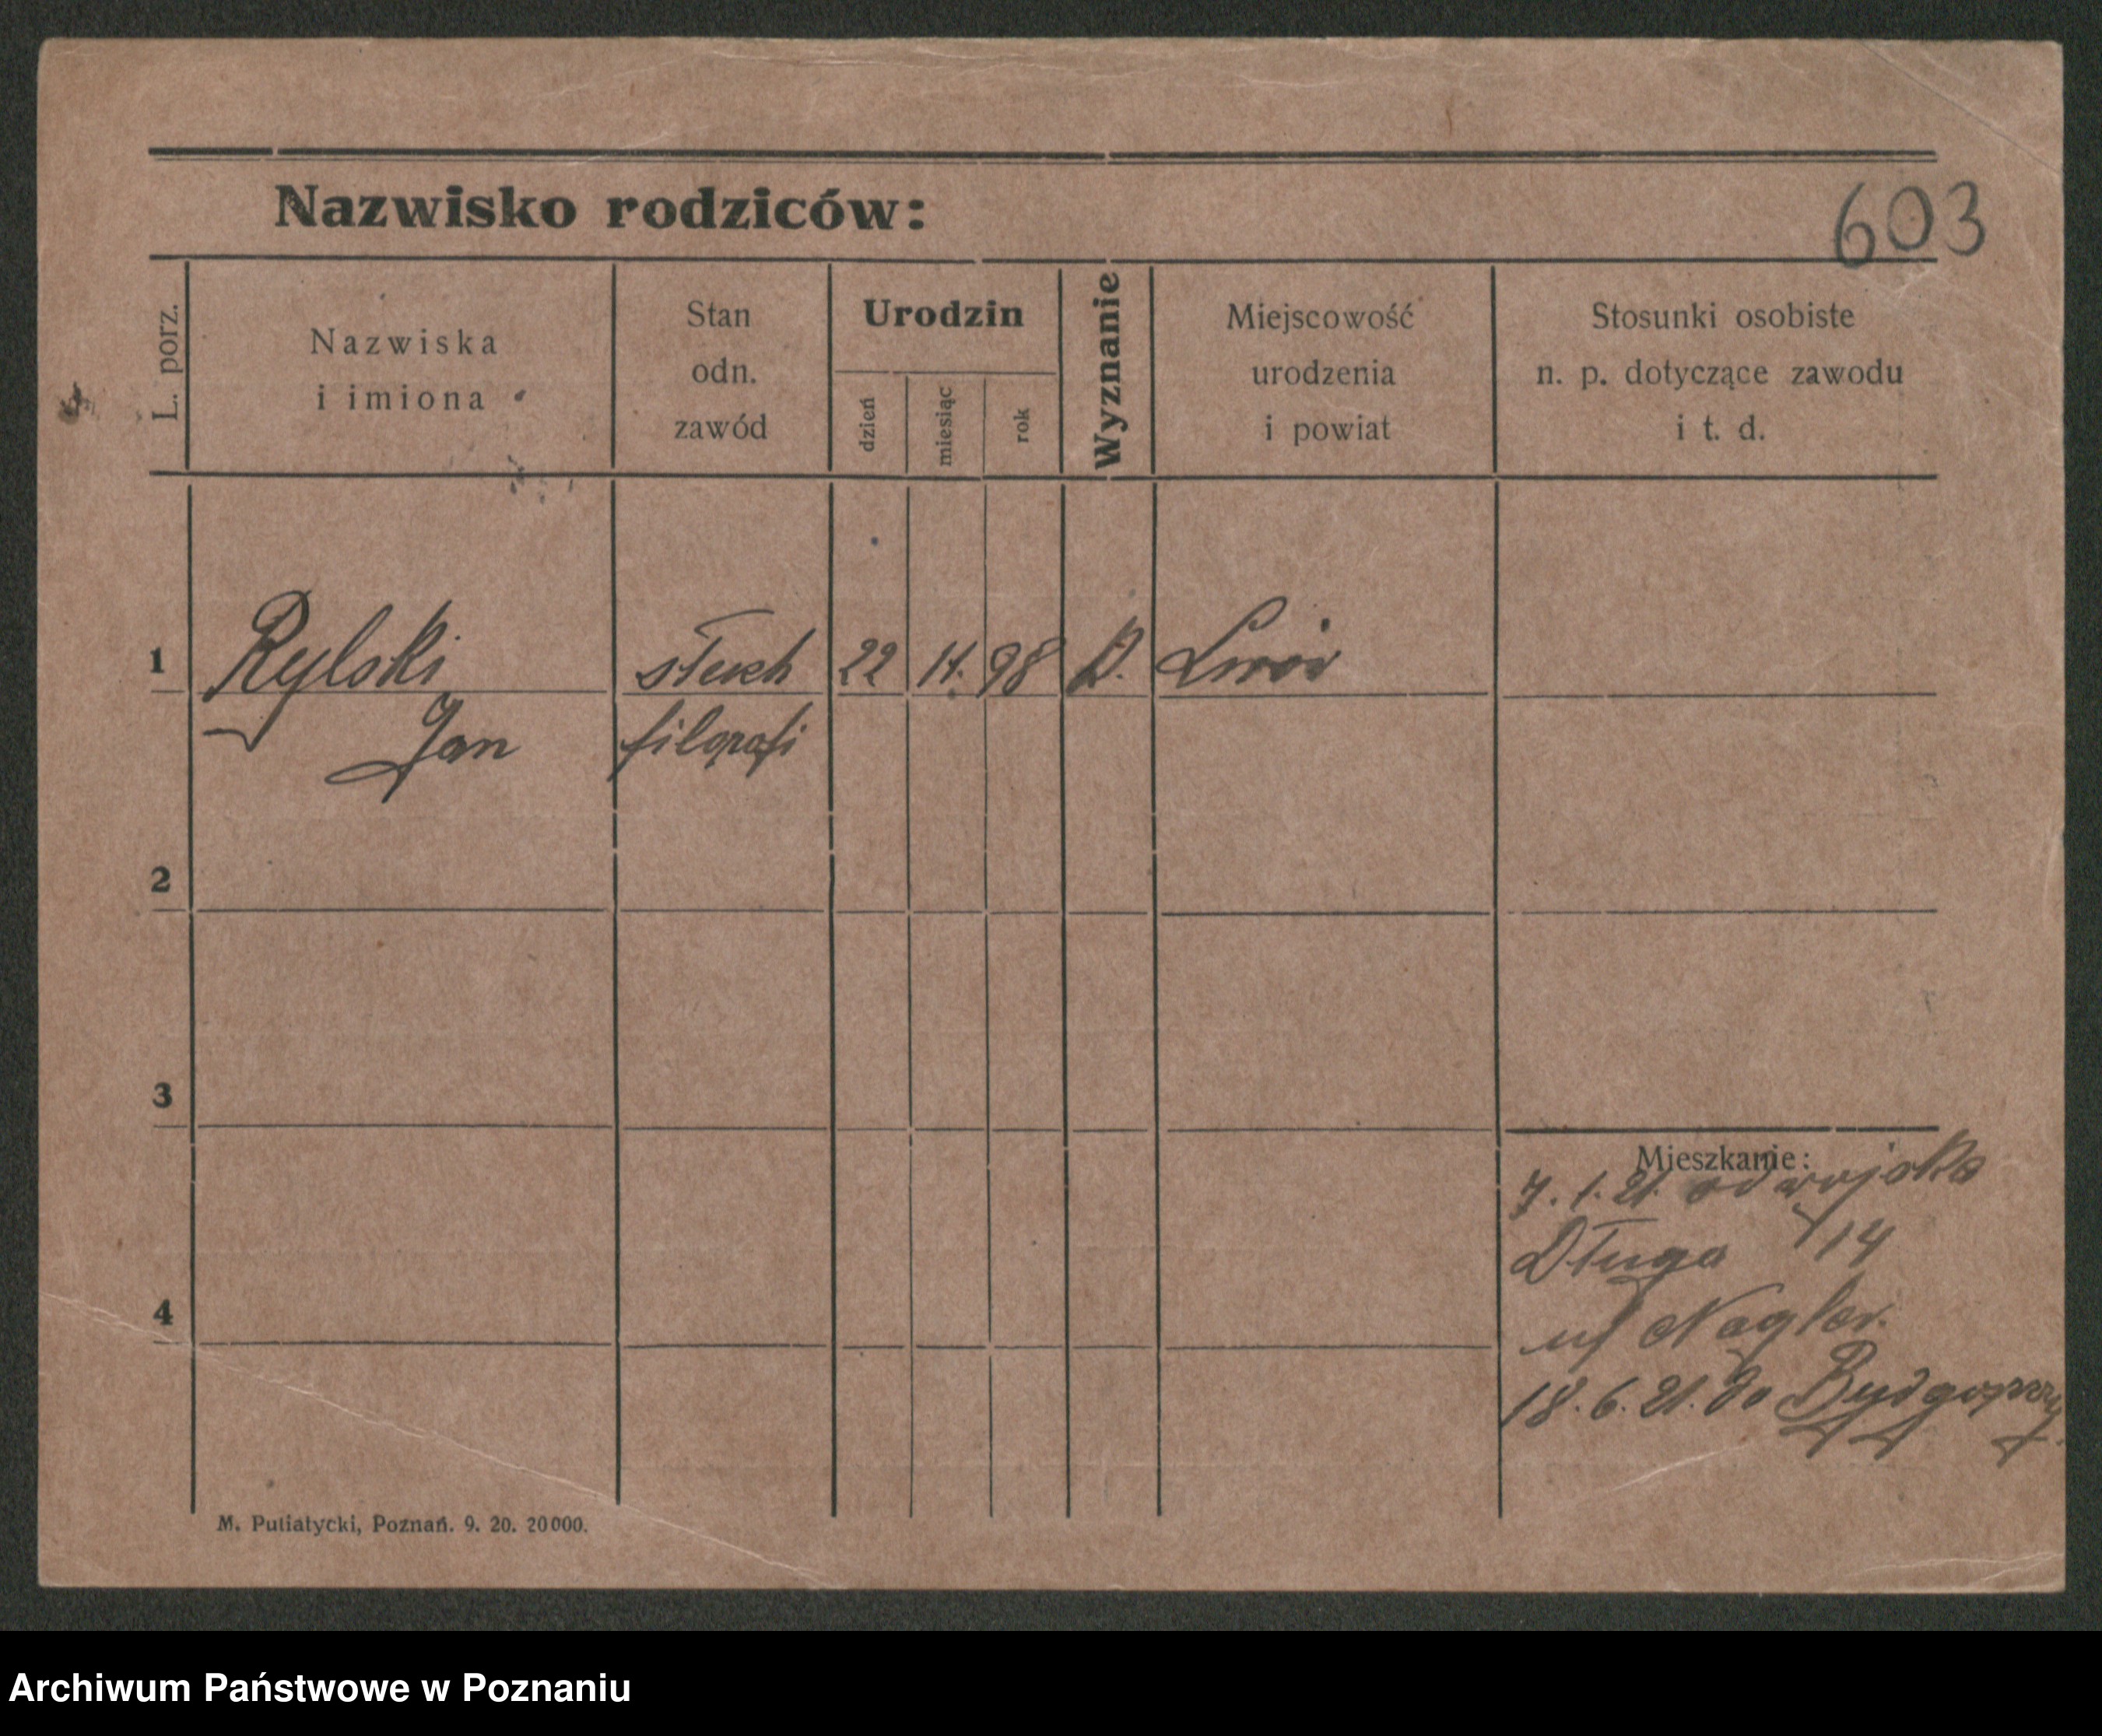 Nazwisko rodziców:
603
L. porz.
Nazwiska
i imiona
Stan
odn.
zawód
Urodzin
dzień
miesiąc
rok
Wyznanie
Miejscowość
urodzenia
i powiat
Stosunki osobiste
n. p. dotyczące zawodu
i t. d.
1 Rylski słuch 22 11. 98 Lwów
Jan filozofi
2
3
4
Mieszkanie:
7. 1. 21. od wojska
Długa 14
Nagler.
18. 6. 21. do Bydgoszczy
M. Putiatycki, Poznań. 9. 20. 20000.
Archiwum Państwowe w Poznaniu